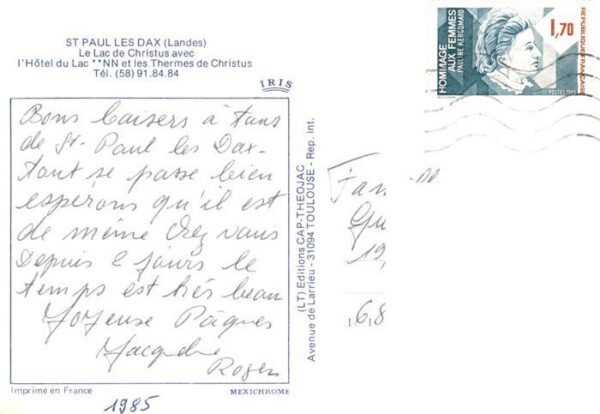 ST PAUL LES DAX (Landes)
Le Lac de Christus avec
l'Hôtel du Lac **NN et les Thermes de Christus
Tél. (58) 91.84.84
IRIS
Bons baisers à tous
de St. Paul les Dax.
tout se passe bien
espérons qu'il est
de même chez vous
Depuis 2 jours le
temps est très beau
Joyeuse Pâques
Jacqueline
Roger
Imprimé en France
MEXICHROME
1985
(LT) Editions CAP-THEOJAC
Avenue de Larrieu - 31094 TOULOUSE - Rep. int.
HOMMAGE
AUX FEMMES
PAULINE KERGOMARD
1,70
REPUBLIQUE FRANÇAISE
POSTES 1985
Fam
Gu
19,
,6,8